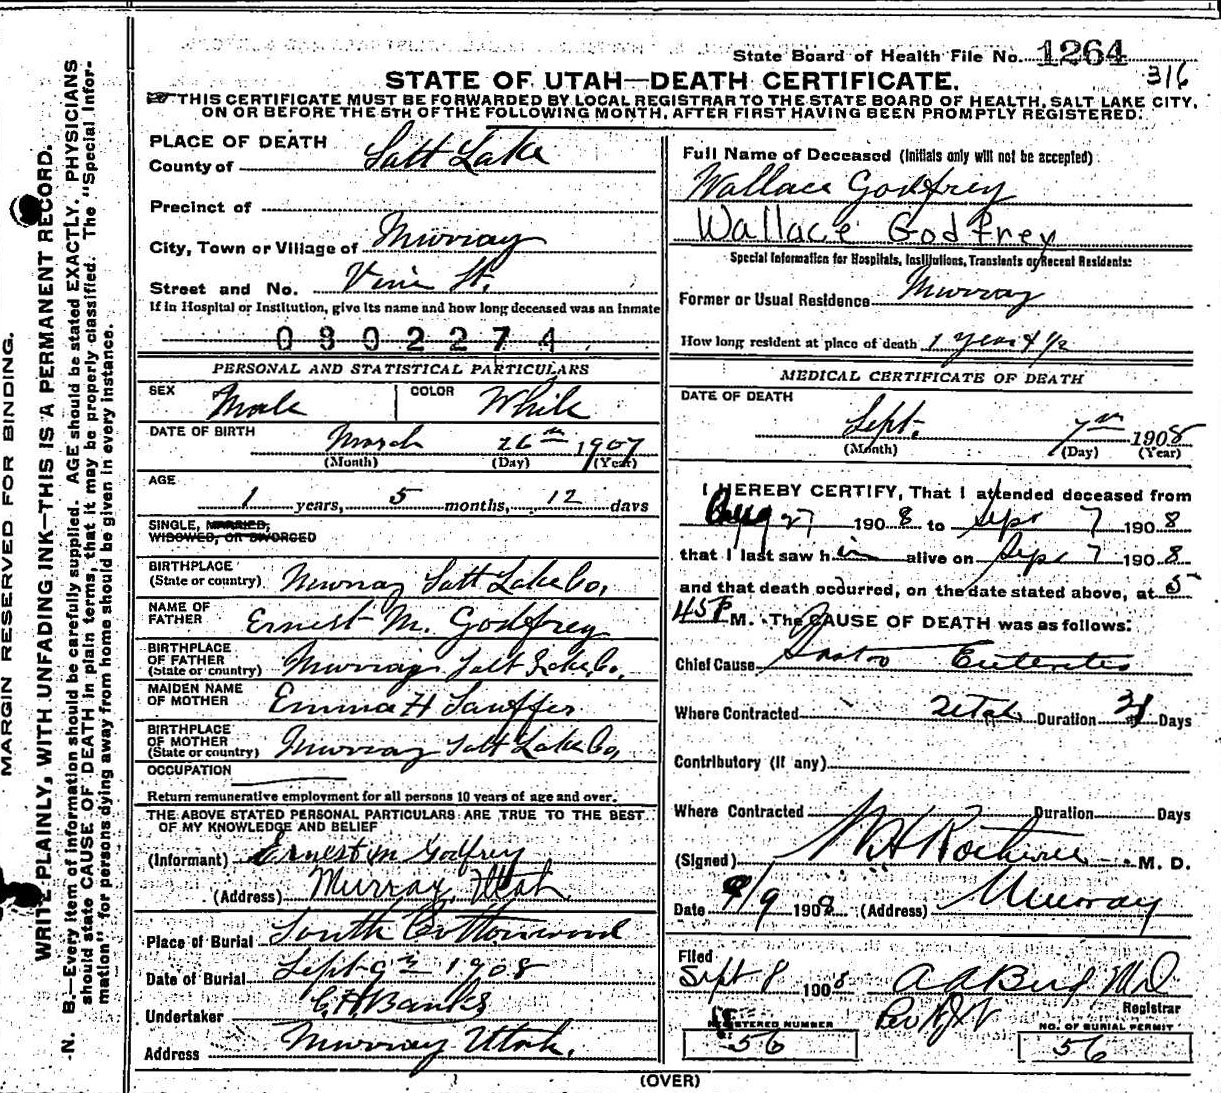 State Board of Health File No. 1264
316
STATE OF UTAH—DEATH CERTIFICATE.
THIS CERTIFICATE MUST BE FORWARDED BY LOCAL REGISTRAR TO THE STATE BOARD OF HEALTH, SALT LAKE CITY,
ON OR BEFORE THE 5TH OF THE FOLLOWING MONTH, AFTER FIRST HAVING BEEN PROMPTLY REGISTERED.
MARGIN RESERVED FOR BINDING.
WRITE PLAINLY, WITH UNFADING INK—THIS IS A PERMANENT RECORD.
N. B.—Every item of information should be carefully supplied. AGE should be stated EXACTLY. PHYSICIANS
should state CAUSE OF DEATH in plain terms, that it may be properly classified. The "Special Infor-
mation" for persons dying away from home should be given in every instance.
PLACE OF DEATH
County of Salt Lake
Precinct of
City, Town or Village of Murray
Street and No. Vine St.
If in Hospital or Institution, give its name and how long deceased was an inmate
0802274
PERSONAL AND STATISTICAL PARTICULARS
SEX Male COLOR White
DATE OF BIRTH March 26th 1907
(Month) (Day) (Year)
AGE
1 years, 5 months, 12 days
SINGLE, MARRIED,
WIDOWED, OR DIVORCED
BIRTHPLACE
(State or country) Murray Salt Lake Co,
NAME OF
FATHER Ernest M. Godfrey
BIRTHPLACE
OF FATHER
(State or country) Murray Salt Lake Co,
MAIDEN NAME
OF MOTHER Emma H
BIRTHPLACE
OF MOTHER
(State or country) Murray Salt Lake Co,
OCCUPATION
Return remunerative employment for all persons 10 years of age and over.
THE ABOVE STATED PERSONAL PARTICULARS ARE TRUE TO THE BEST
OF MY KNOWLEDGE AND BELIEF
(Informant) Ernest M Godfrey
(Address) Murray, Utah
Place of Burial South Cottonwood
Date of Burial Sept 9th 1908
Undertaker Banks
Address Murray Utah.
Full Name of Deceased (Initials only will not be accepted)
Wallace Godfrey
Wallace Godfrey
Special Information for Hospitals, Institutions, Transients or Recent Residents:
Former or Usual Residence Murray
How long resident at place of death 1 year & 1/2
MEDICAL CERTIFICATE OF DEATH
DATE OF DEATH
Sept. 7th 1908
(Month) (Day) (Year)
I HEREBY CERTIFY, That I attended deceased from
Aug 27 1908 to Sept 7 1908
that I last saw him alive on Sept 7 1908
and that death occurred, on the date stated above, at 5
45 P M. The CAUSE OF DEATH was as follows:
Chief Cause Gastro Enteritis
Where Contracted Utah Duration Days
Contributory (if any)
Where Contracted Duration Days
(Signed) M. D.
Date 9/9 1908 (Address) Murray
Filed
Sept 8 1908
Registrar
REGISTERED NUMBER
56
NO. OF BURIAL PERMIT
56
(OVER)